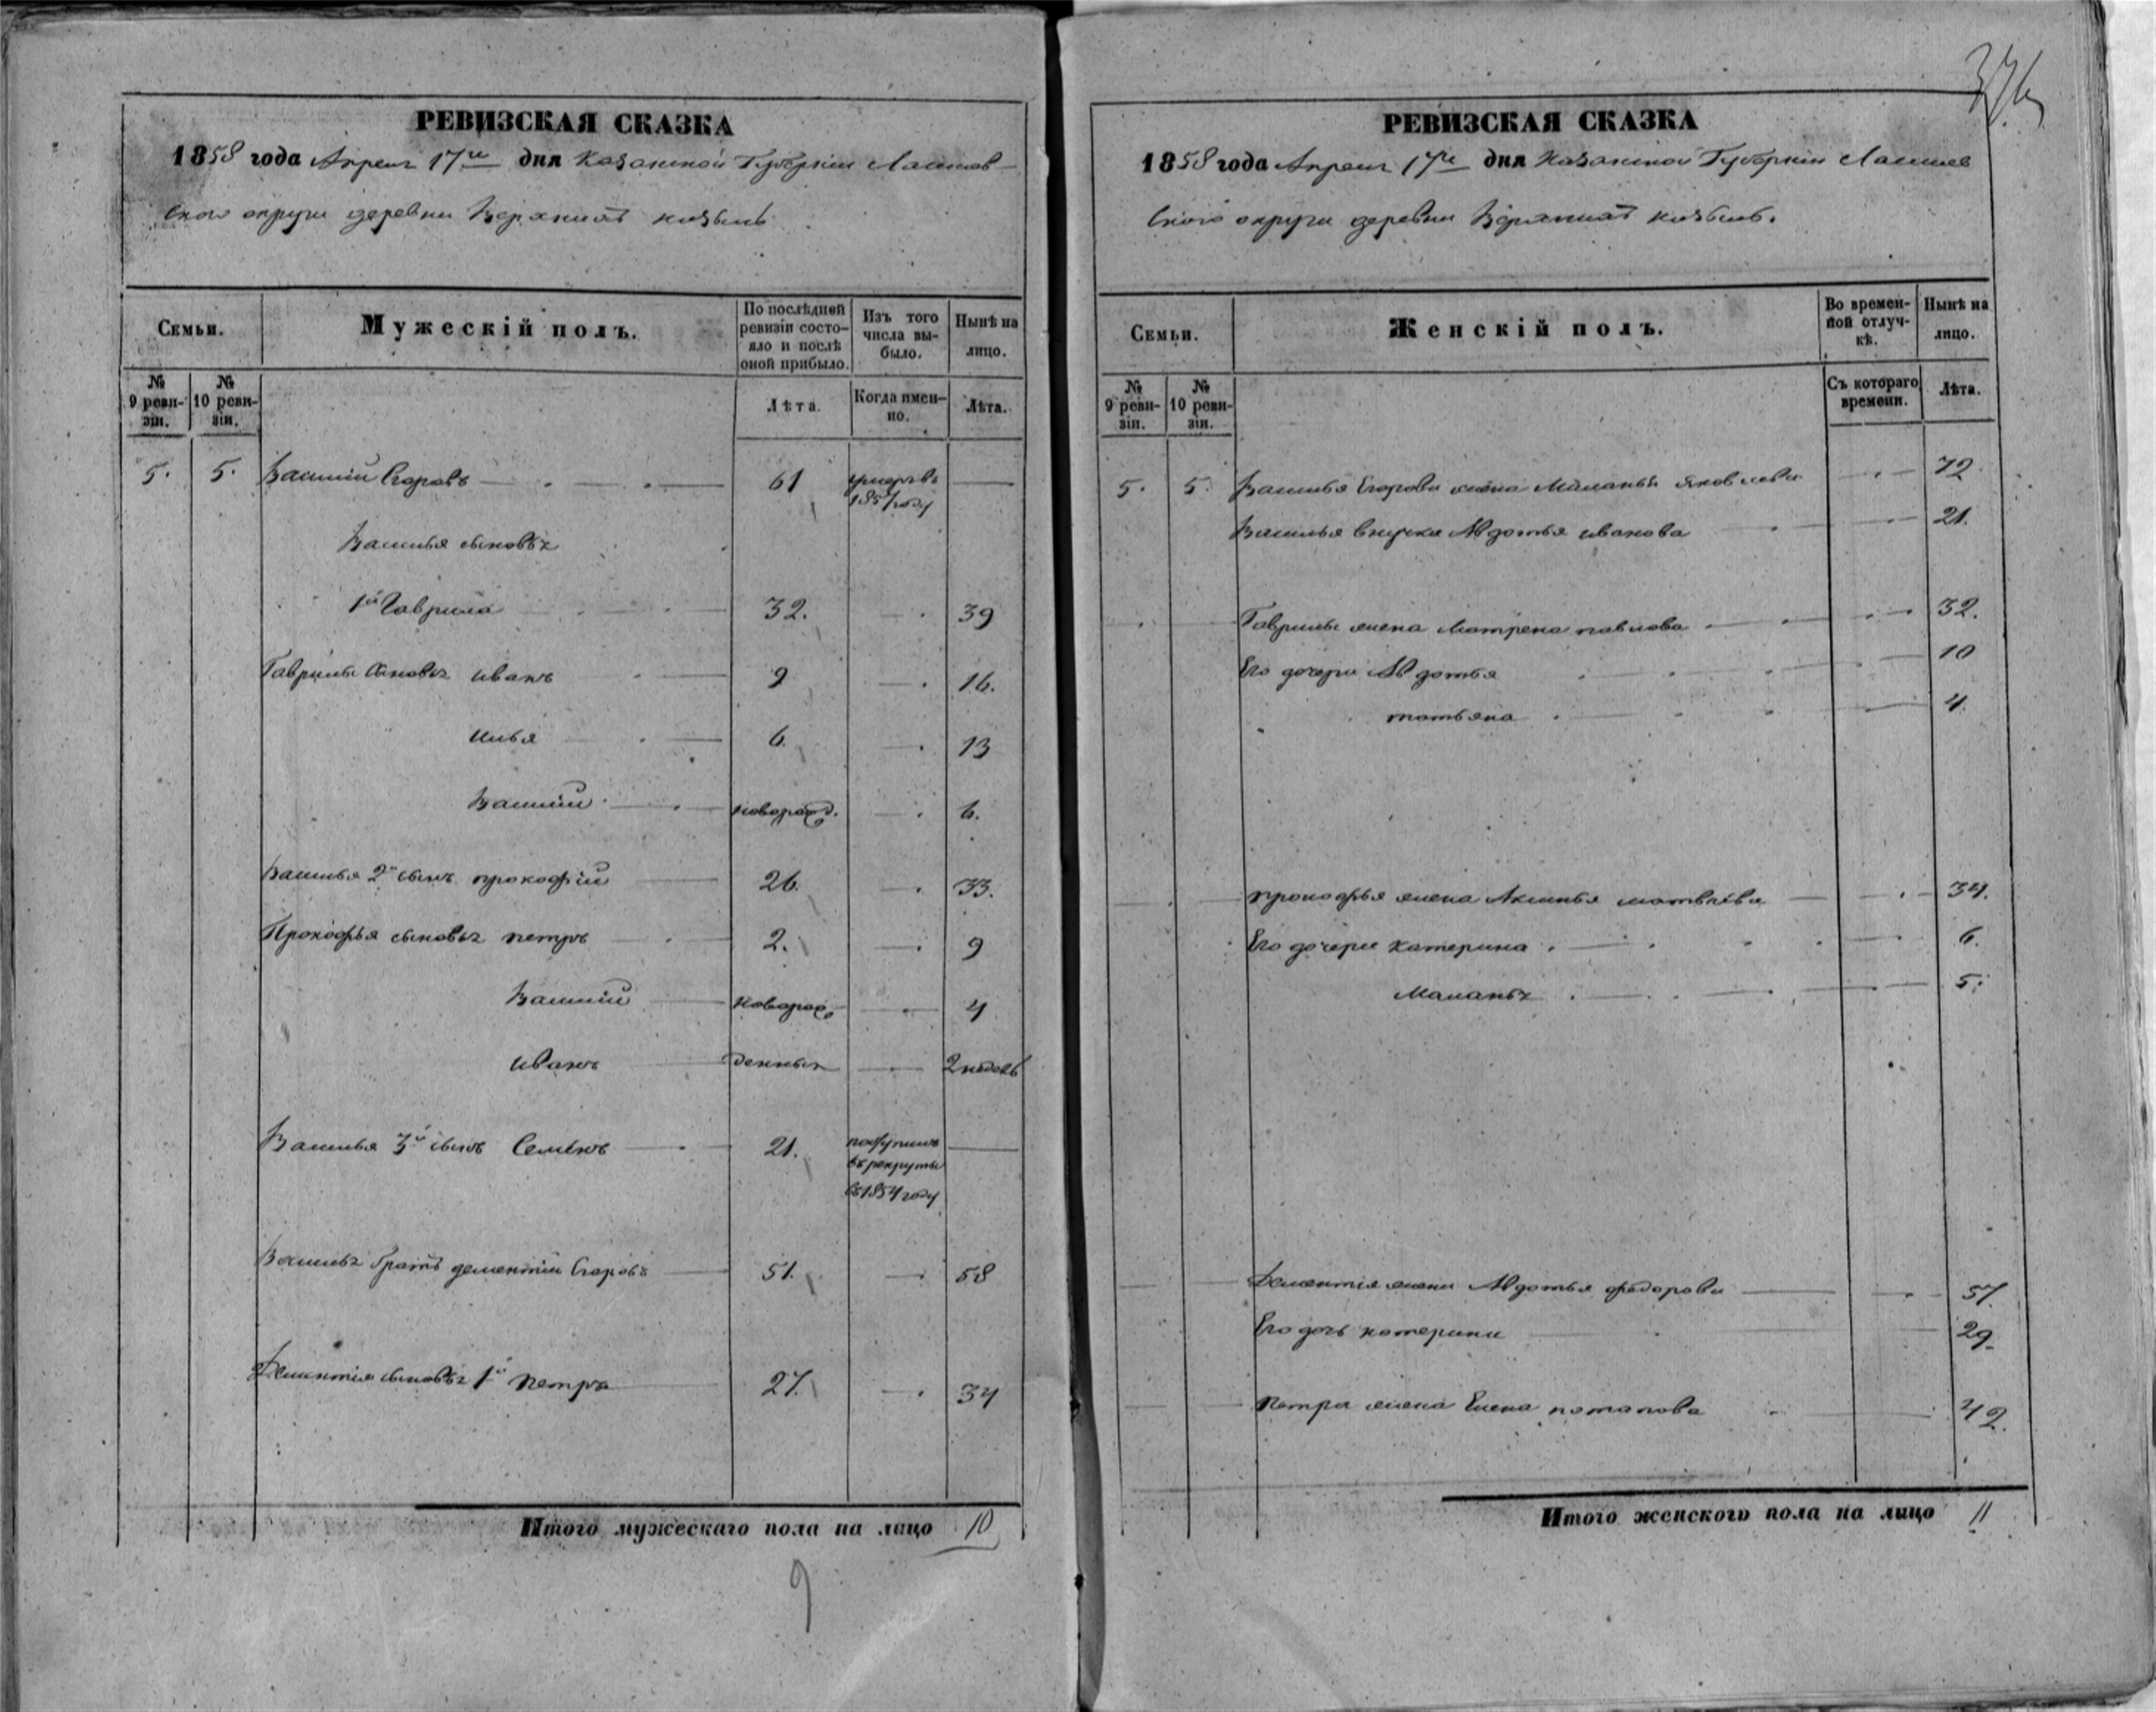 РЕВИЗСКАЯ СКАЗКА
1858 года Апреля 17го дня Казанской Губернии Лаишев-
скаго округи деревни Верхнихъ
Семьи.
Мужескій полъ.
По послѣдней ревизіи состояло и послѣ оной прибыло.
Изъ того числа выбыло.
Нынѣ на лицо.
№ 9 ревизіи.
№ 10 ревизіи.
Лѣта.
Когда имен-но.
Лѣта.
5. 5. Василій Егоровъ 61 умеръ въ 1857 году
Василья сыновья
1й Гаврила 32. 39
Гаврилы сыновья Иванъ 9 16.
Илья 6. 13
Василій новорожд. 6.
Василья 2й сынъ прокофій 26. 33.
Прокофья сыновья петръ 2. 9
Василій новорож- 4
Иванъ денныя 2 недель
Василья 3й сынъ Семенъ 21. поступилъ въ рекруты въ 1854 году
Василья братъ дементій Егоровъ 51. 58
Дементія сыновья 1й Петръ 27. 34
Итого мужескаго пола на лицо 10
9
376
РЕВИЗСКАЯ СКАЗКА
1858 года Апреля 17го дня Казанской Губернии Лаишев
скаго округи деревни Верхнихъ
Семьи.
Женскій полъ.
Во времен-ной отлуч-кѣ.
Нынѣ на лицо.
№ 9 ревизіи.
№ 10 ревизіи.
Съ котораго времени.
Лѣта.
5. 5. Василья Егорова жена Маланья яковлева 72
Василья внучка Авдотья иванова 21.
Гаврилы жена Матрена павлова 32.
Его дочери Авдотья 10
татьяна 4
прокофья жена Аксинья матвеева 34.
Его дочери катерина 6.
Маланья 5.
Дементія жена Авдотья федорова 57.
Его дочь катерина 29.
Петра жена Елена потапова 42.
Итого женского пола на лицо 11